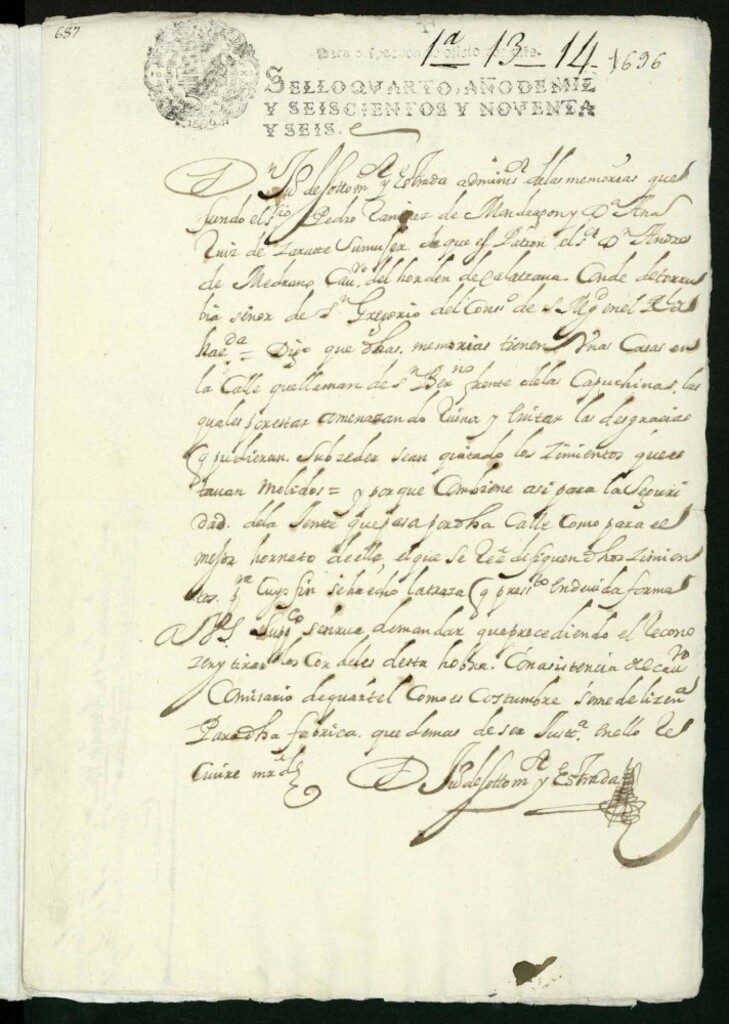 687
1ª 13 14 1696
SELLO QVARTO, AÑO DE MIL
Y SEISCIENTOS Y NOVENTA
Y SEIS.
Dn Juº de Sottomor y Estrada administor de las memorias que
fundo el Pedro Ramirez de Mondragon y Dª Ana
Ruiz de Zaratte Su muger de que es Patron el sr Dn Andre
de Medrano Cauro del horden de Calatraua Conde de torru
bia señor de Sn Gregorio del Conso de S Mgd en el Rl de
haeda = Digo que dhas memorias tienen Vnas Casas en
la Calle que llaman de Sn Berno frente de las Capuchinas, las
quales por estar amenazando Ruina y Euitar las desgracias
q pudieran Subzeder se an quitado los Zimientos que es
tauan molidos = y porque Combiene asi para la Seguri
dad de la Jente que pasa por dha Calle Como para el
mejor horneto de ella, el que se dhos Zimien
tos pª Cuyo fin se ha echo la traza q presto en deuida forma
A VS Suppco se sirua de mandar que precediendo el Recono
zer y tirar los Cordeles desta hobra Con asistencia del cauro
Comisario de quartel Como es Costumbre se me de lizenª
Para dha fabrica que demas de ser Justª en ello Re
Ciuire mrd
Dn Juº de Sottomor y Estrada